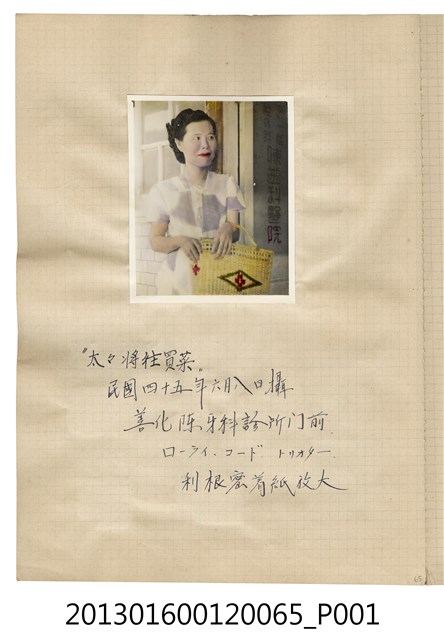 陳齒科醫院
"太々將往買菜"
民國四十五年六月八日攝
善化陳牙科診所门前
ローライ、コード トリオター
利根密着紙放大
65
201301600120065_P001